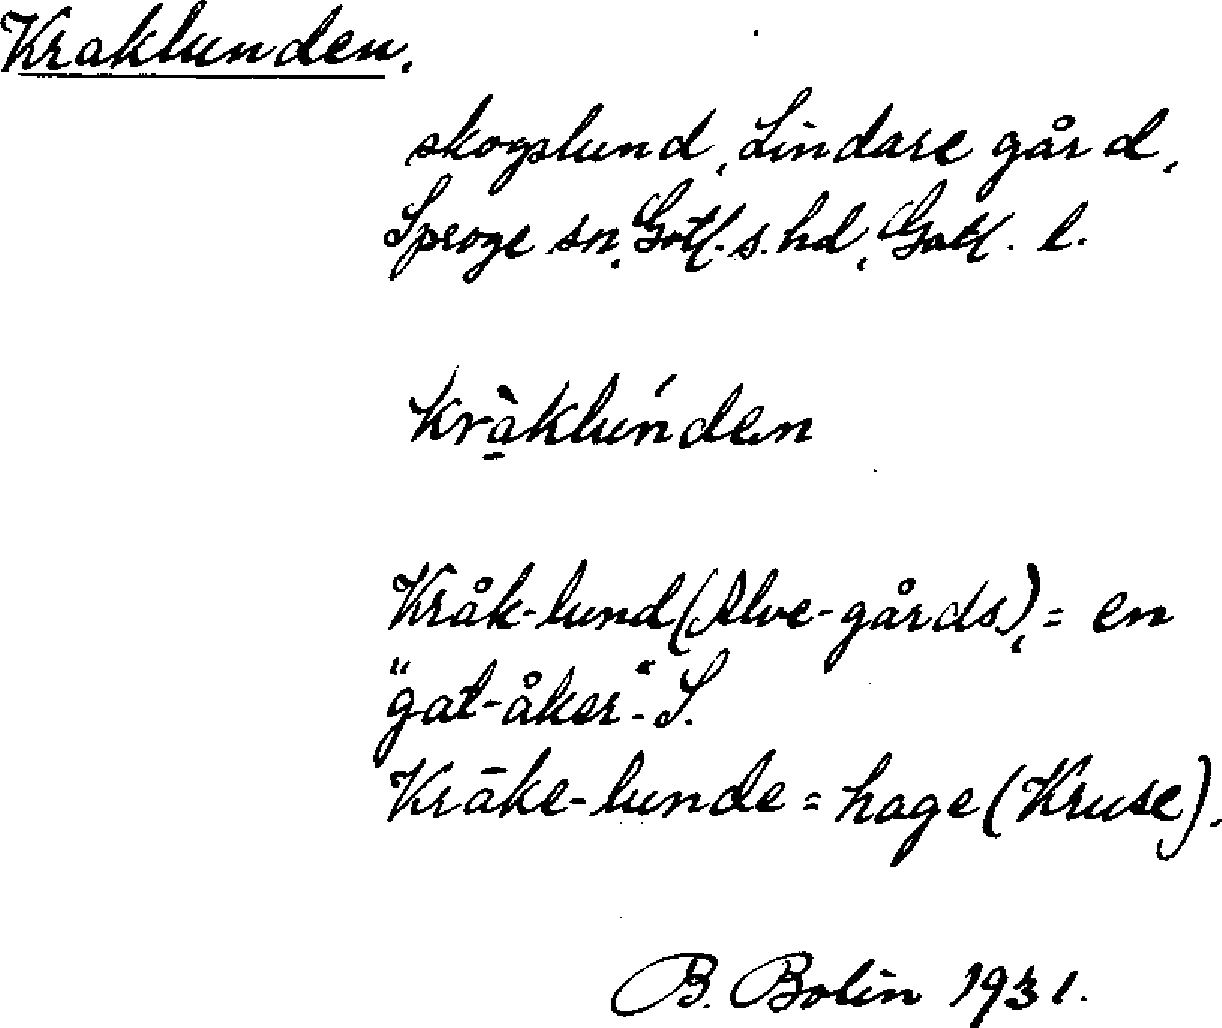 Kraklunden.
skogslund, Lindare gård,
Sproge sn, Gotl. s. hd, Gotl. l.
Krà̱klúnden
Kråk-lund (Alve-gårds), = en
"gat-åker". S.
Krāke-lunde = hage (Kruse).
B. Bolin 1931.